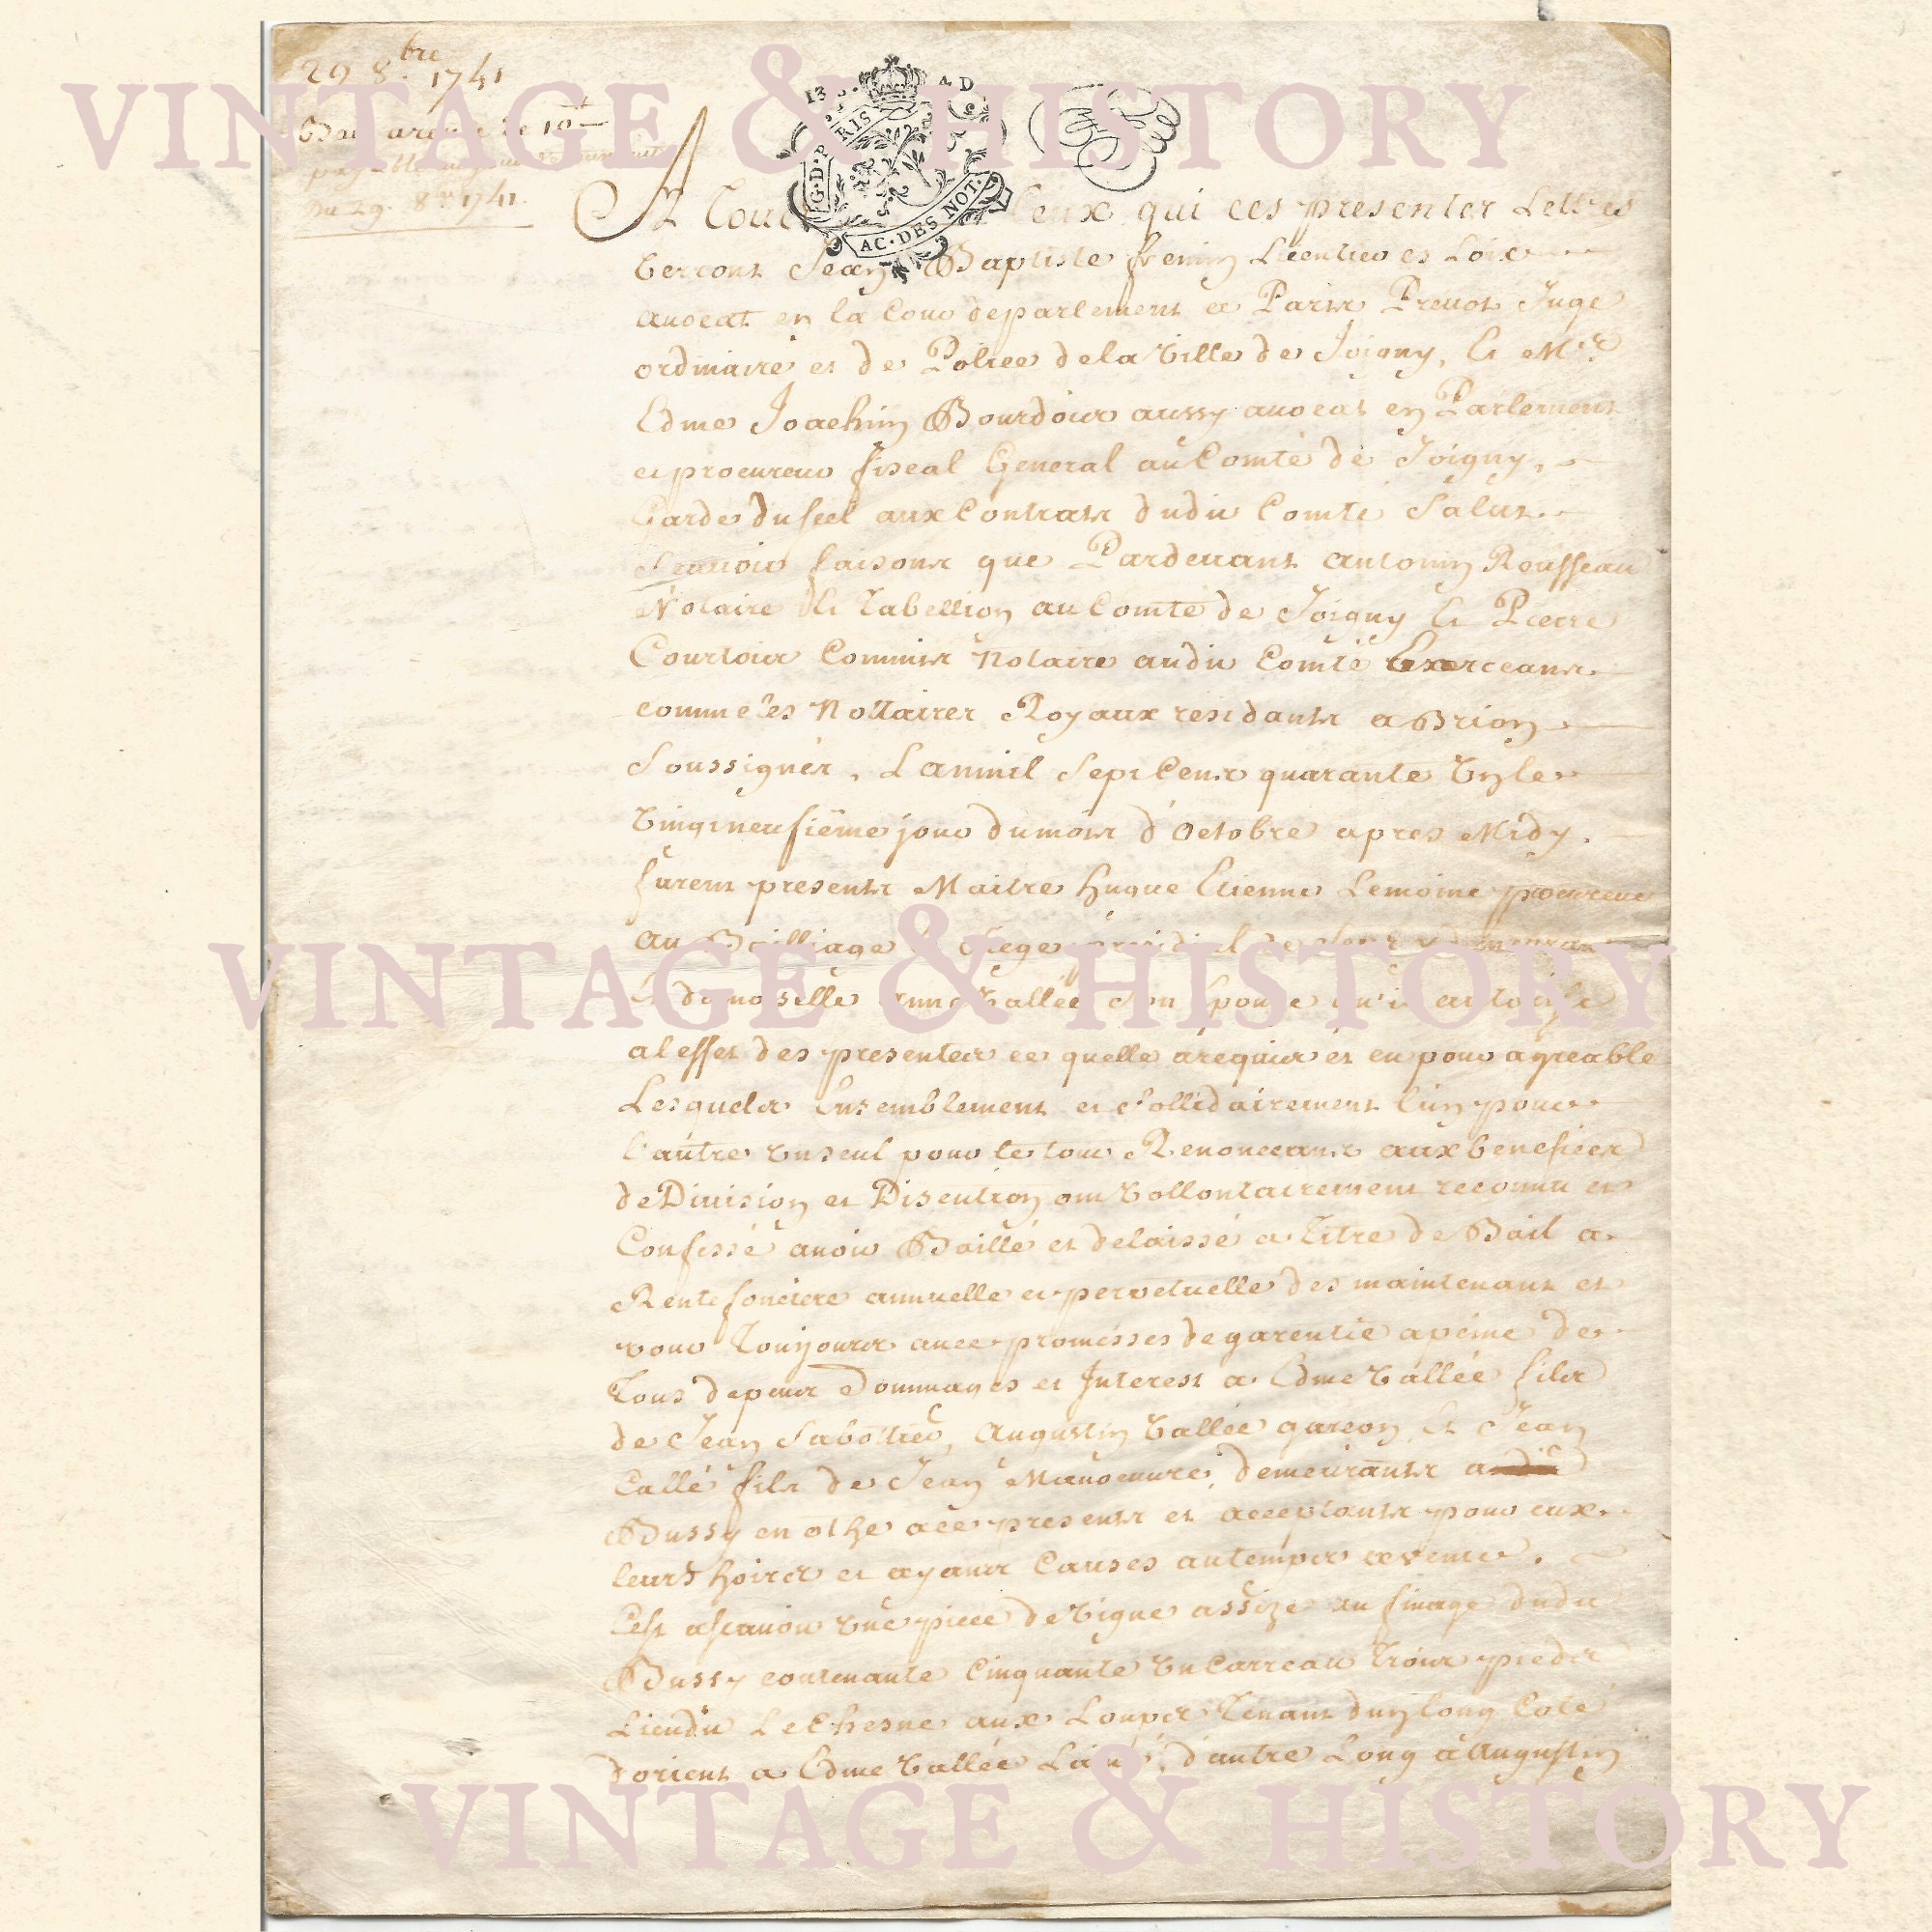 29 8.bre 1741
Bail a rente de 10tt
payable au jour de
Du 29. 8bre 1741.
VINTAGE & HISTORY
G.D. PARIS
AC. DES NOT.
A Tous Ceux qui ces presentes Lettres
Verront Jean Baptiste fremin Licentier es Loix
avocat en la Cour de parlement a Paris Prevot Juge
ordinaire et de Police de la Ville de Joigny, Et Me
Edme Joachim Bourdois aussy avocat en Parlement
et procureur fiscal General au Comté de Joigny,
Garde du scel aux Contrats dudit Comté Salut.
Scavoir faisons que Pardevant antoine Rousseau
Notaire Et Tabellion au Comté de Joigny Et Pierre
Courtois Commis Notaire audit Comté Exerceants
comme les Nottaires Royaux residants a Brion
Soussignés, L'an mil Sept Cents quarante Un le
Vingt neufiême jour du mois d'Octobre apres Midy.
furent presents Maitre hugue Etienne Lemoine procureur
au Bailliage Siege presidial de Sens y demeurant
Et demoiselle anne Vallée Son Epouse qu'il autorise
a l effet des presentes ce quelle a requis et eu pour agreable
Lesquels Ensemblement et Sollidairement l'un pour
l'autre un seul pour le tout Renonceants aux benefices
de Division et Discution ont Vollontairement reconnu et
Confessé avoir Baillé et delaissé a Titre de Bail a
Rente fonciere annuelle et perpetuelle des maintenant et
pour Toujours avec promesses de garentie a peine de
Tous depens Dommages et Interest a Edme Vallée fils
de Jean Sabottier, Augustin Vallée garçon, Et Jean
Vallé fils de Jean Manoeuvre, demeurants a
Bussy en othe a ce presents et acceptants pour eux
leurs hoirs et ayants Causes au temps a venir.
Cest ascavoir une piece de Vigne assize au finage dudit
Bussy contenante Cinquante Un Carreau Trois pieds
Lieudit Le Chesne aux Loups Tenant d'un long Coté
d'orient a Edme Vallée L'ainé, d'autre Long a Augustin
VINTAGE & HISTORY
VINTAGE & HISTORY